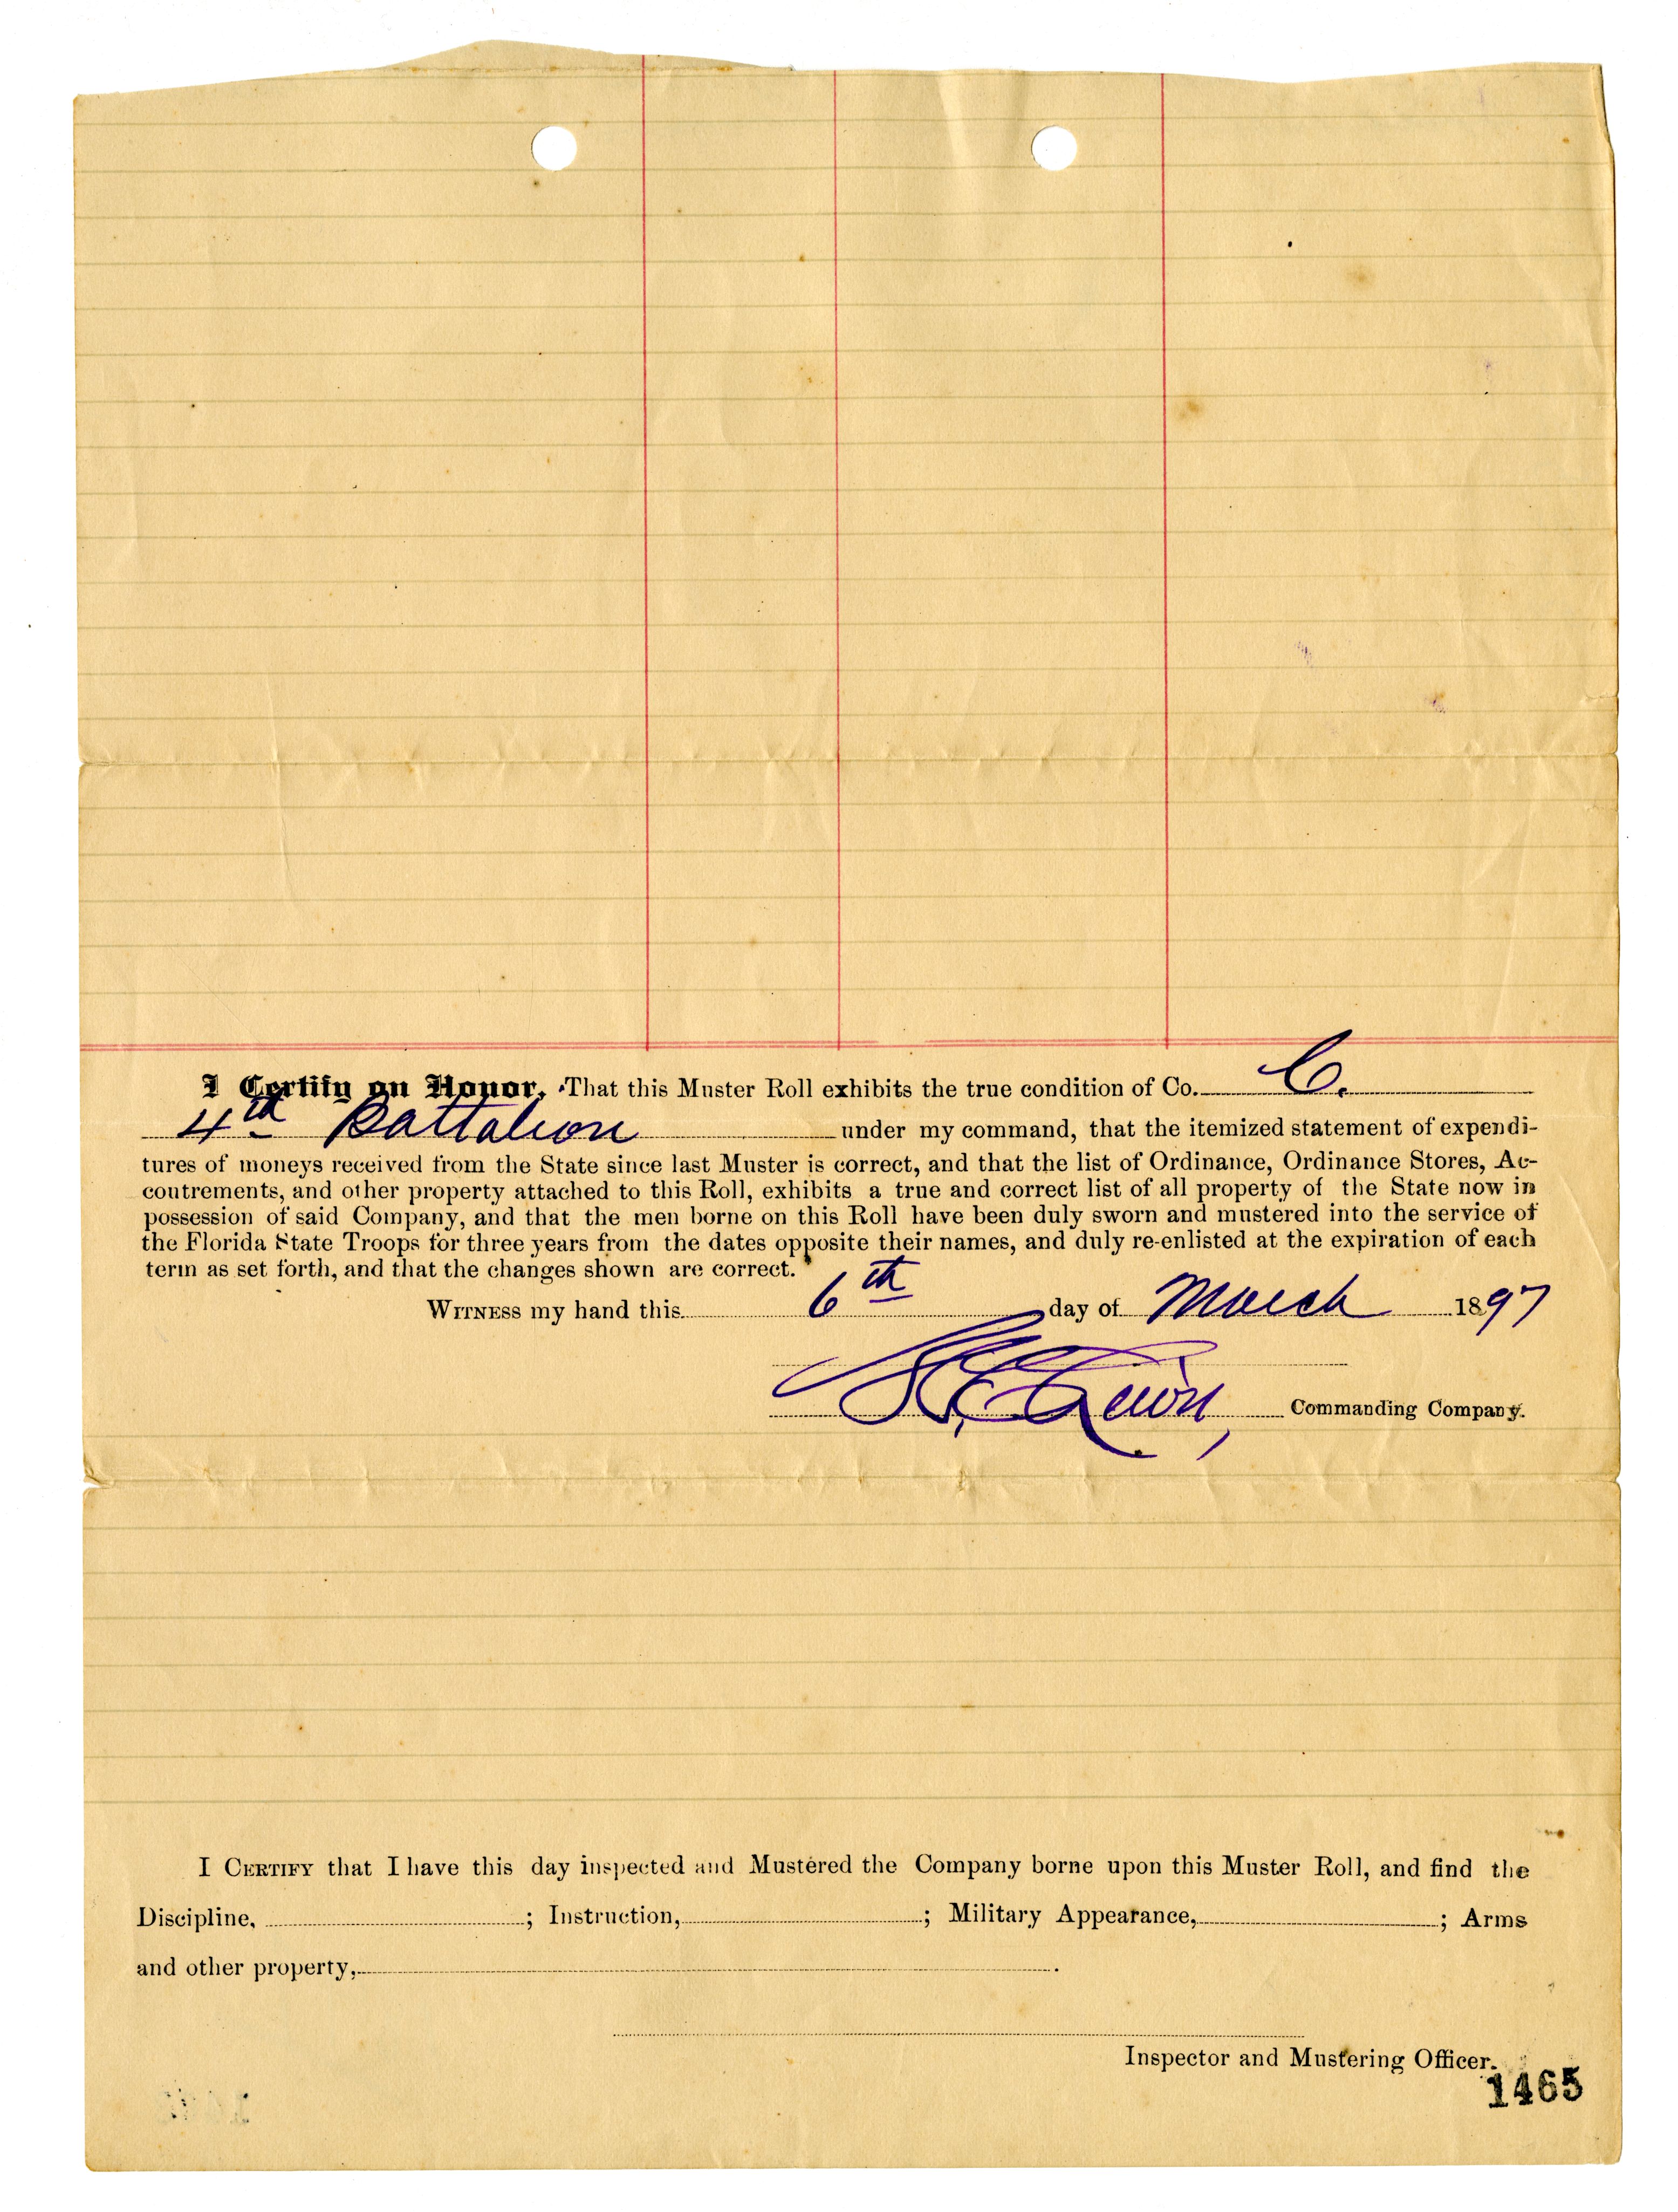 I Certify on Honor, That this Muster Roll exhibits the true condition of Co. C.
4th Battalion under my command, that the itemized statement of expendi-
tures of moneys received from the State since last Muster is correct, and that the list of Ordinance, Ordinance Stores, Ac-
coutrements, and other property attached to this Roll, exhibits a true and correct list of all property of the State now in
possession of said Company, and that the men borne on this Roll have been duly sworn and mustered into the service of
the Florida State Troops for three years from the dates opposite their names, and duly re-enlisted at the expiration of each
term as set forth, and that the changes shown are correct.
WITNESS my hand this 6th day of March 1897
Commanding Company.
I CERTIFY that I have this day inspected and Mustered the Company borne upon this Muster Roll, and find the
Discipline, ; Instruction, ; Military Appearance, ; Arms
and other property, .
Inspector and Mustering Officer.
1465